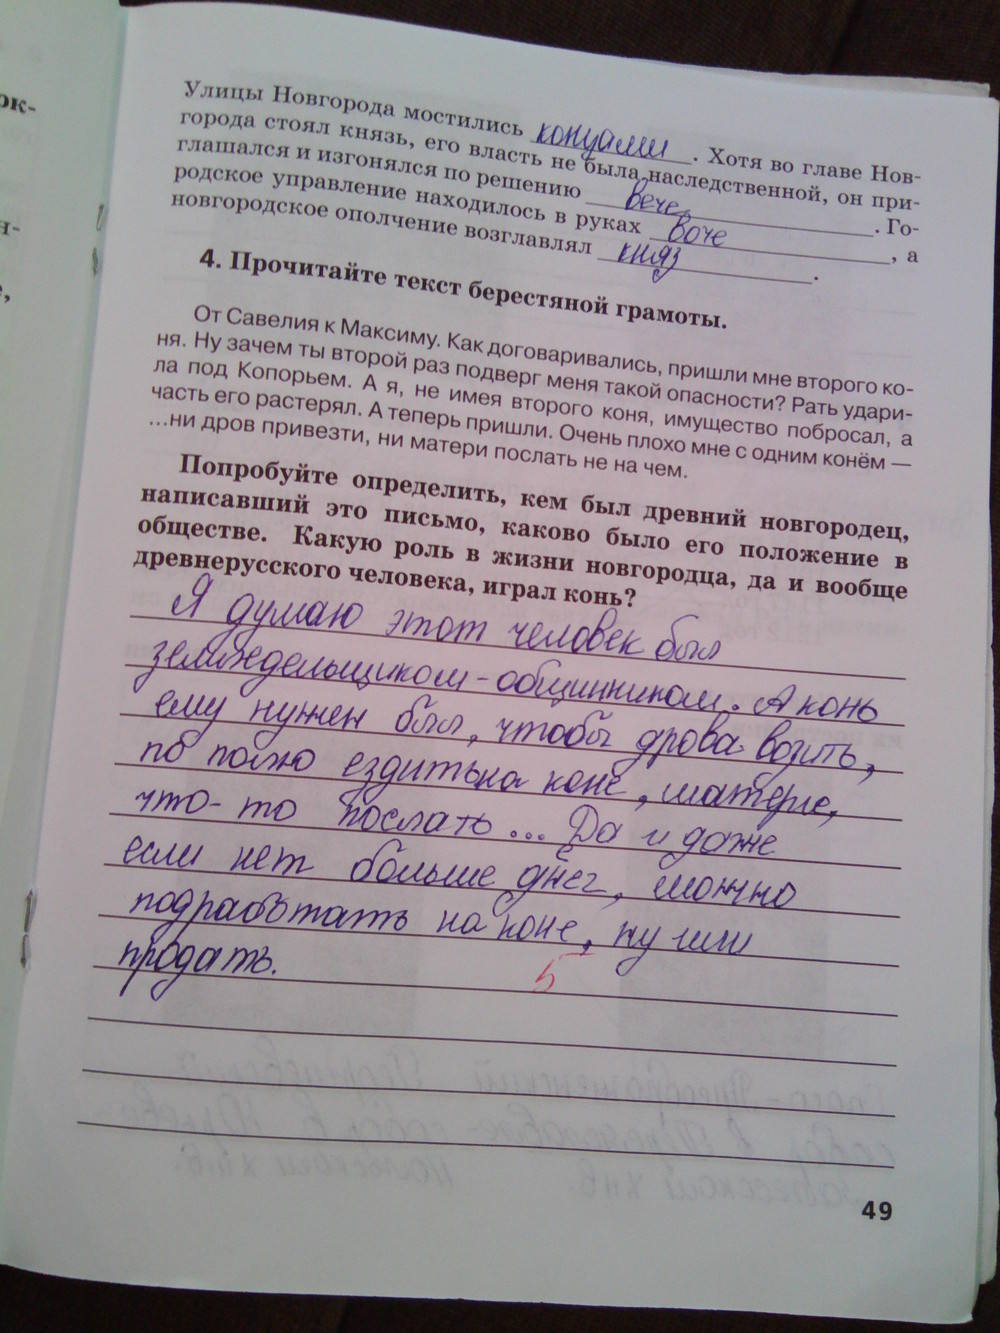 ок-
н-
е,
Улицы Новгорода мостились концами. Хотя во главе Нов-
города стоял князь, его власть не была наследственной, он при-
глашался и изгонялся по решению вече. Го-
родское управление находилось в руках воче, а
новгородское ополчение возглавлял княз.
4. Прочитайте текст берестяной грамоты.
От Савелия к Максиму. Как договаривались, пришли мне второго ко-
ня. Ну зачем ты второй раз подверг меня такой опасности? Рать удари-
ла под Копорьем. А я, не имея второго коня, имущество побросал, а
часть его растерял. А теперь пришли. Очень плохо мне с одним конём —
…ни дров привезти, ни матери послать не на чем.
Попробуйте определить, кем был древний новгородец,
написавший это письмо, каково было его положение в
обществе. Какую роль в жизни новгородца, да и вообще
древнерусского человека, играл конь?
Я думаю этот человек был
земледельщиком-общинником. А конь
ему нужен был, чтобы дрова возить,
по полю ездить на коне, матере,
что-то послать... Да и даже
если нет больше днег, можно
подработать на коне, ну или
продать.
5
49